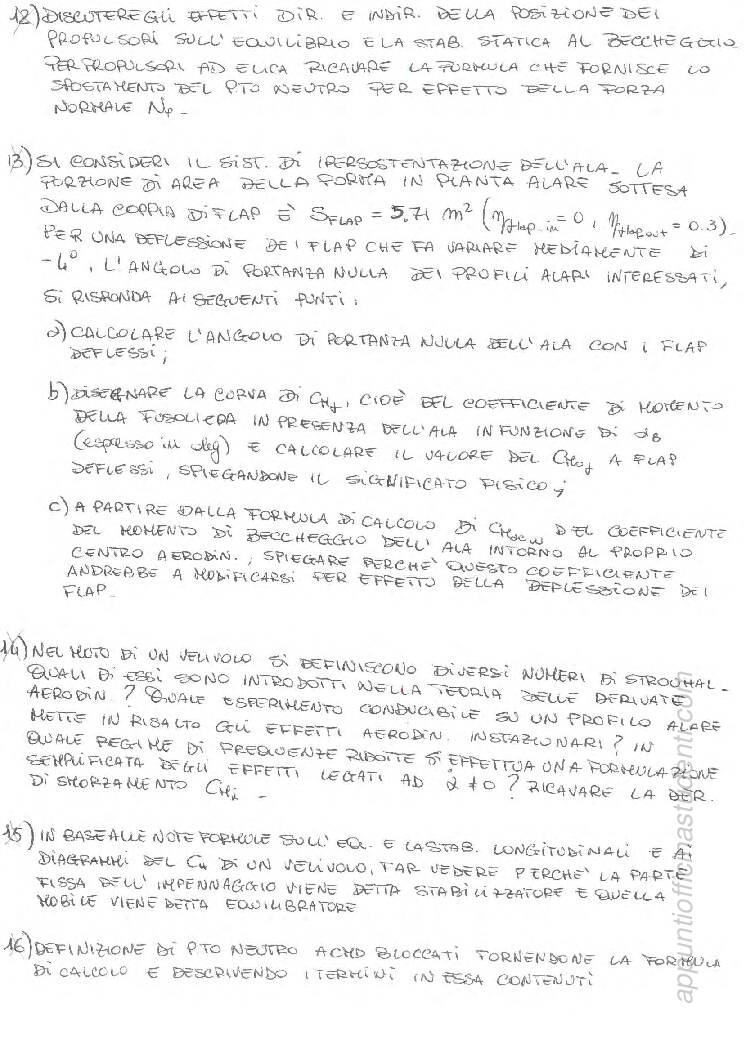 12) DISCUTERE GLI EFFETTI DIR. E INDIR. DELLA POSIZIONE DEI
PROPULSORI SULL'EQUILIBRIO E LA STAB. STATICA AL BECCHEGGIO
PER PROPULSORI AD ELICA RICAVARE LA FORMULA CHE FORNISCE LO
SPOSTAMENTO DEL PTO NEUTRO PER EFFETTO DELLA FORZA
NORMALE Np.
13) SI CONSIDERI IL SIST. DI IPERSOSTENTAZIONE DELL'ALA. LA
PORZIONE DI AREA DELLA FORMA IN PIANTA ALARE SOTTESA
DALLA COPPIA DI FLAP È S_FLAP = 5.71 m² (η_flap_in = 0, η_flap out = 0.3).
PER UNA DEFLESSIONE DEI FLAP CHE FA VARIARE MEDIAMENTE DI
-4°, L'ANGOLO DI PORTANZA NULLA DEI PROFILI ALARI INTERESSATI,
SI RISPONDA AI SEGUENTI PUNTI:
a) CALCOLARE L'ANGOLO DI PORTANZA NULLA DELL'ALA CON I FLAP
DEFLESSI;
b) DISEGNARE LA CURVA DI CMf, CIOÈ DEL COEFFICIENTE DI MOMENTO
DELLA FUSOLIERA IN PRESENZA DELL'ALA IN FUNZIONE DI αB
(espresso in deg) E CALCOLARE IL VALORE DEL CM0f A FLAP
DEFLESSI, SPIEGANDONE IL SIGNIFICATO FISICO;
c) A PARTIRE DALLA FORMULA DI CALCOLO DI CMacw DEL COEFFICIENTE
DEL MOMENTO DI BECCHEGGIO DELL'ALA INTORNO AL PROPRIO
CENTRO AERODIN., SPIEGARE PERCHE' QUESTO COEFFICIENTE
ANDREBBE A MODIFICARSI PER EFFETTO DELLA DEFLESSIONE DEI
FLAP.
14) NEL MOTO DI UN VELIVOLO SI DEFINISCONO DIVERSI NUMERI DI STROUHAL.
QUALI DI ESSI SONO INTRODOTTI NELLA TEORIA DELLE DERIVATE
AERODIN.? QUALE ESPERIMENTO CONDUCIBILE SU UN PROFILO ALARE
METTE IN RISALTO GLI EFFETTI AERODIN. INSTAZIONARI? IN
QUALE REGIME DI FREQUENZE RIDOTTE SI EFFETTUA UNA FORMULAZIONE
SEMPLIFICATA DEGLI EFFETTI LEGATI AD α̇ ≠ 0? RICAVARE LA DER.
DI SMORZAMENTO CMα̇.
15) IN BASE ALLE NOTE FORMULE SULL'EQ. E LA STAB. LONGITUDINALI E AI
DIAGRAMMI DEL CM DI UN VELIVOLO, FAR VEDERE PERCHE' LA PARTE
FISSA DELL'IMPENNAGGIO VIENE DETTA STABILIZZATORE E QUELLA
MOBILE VIENE DETTA EQUILIBRATORE
16) DEFINIZIONE DI PTO NEUTRO A CMD BLOCCATI FORNENDONE LA FORMULA
DI CALCOLO E DESCRIVENDO I TERMINI IN ESSA CONTENUTI
appuntiofficinastudenti.com